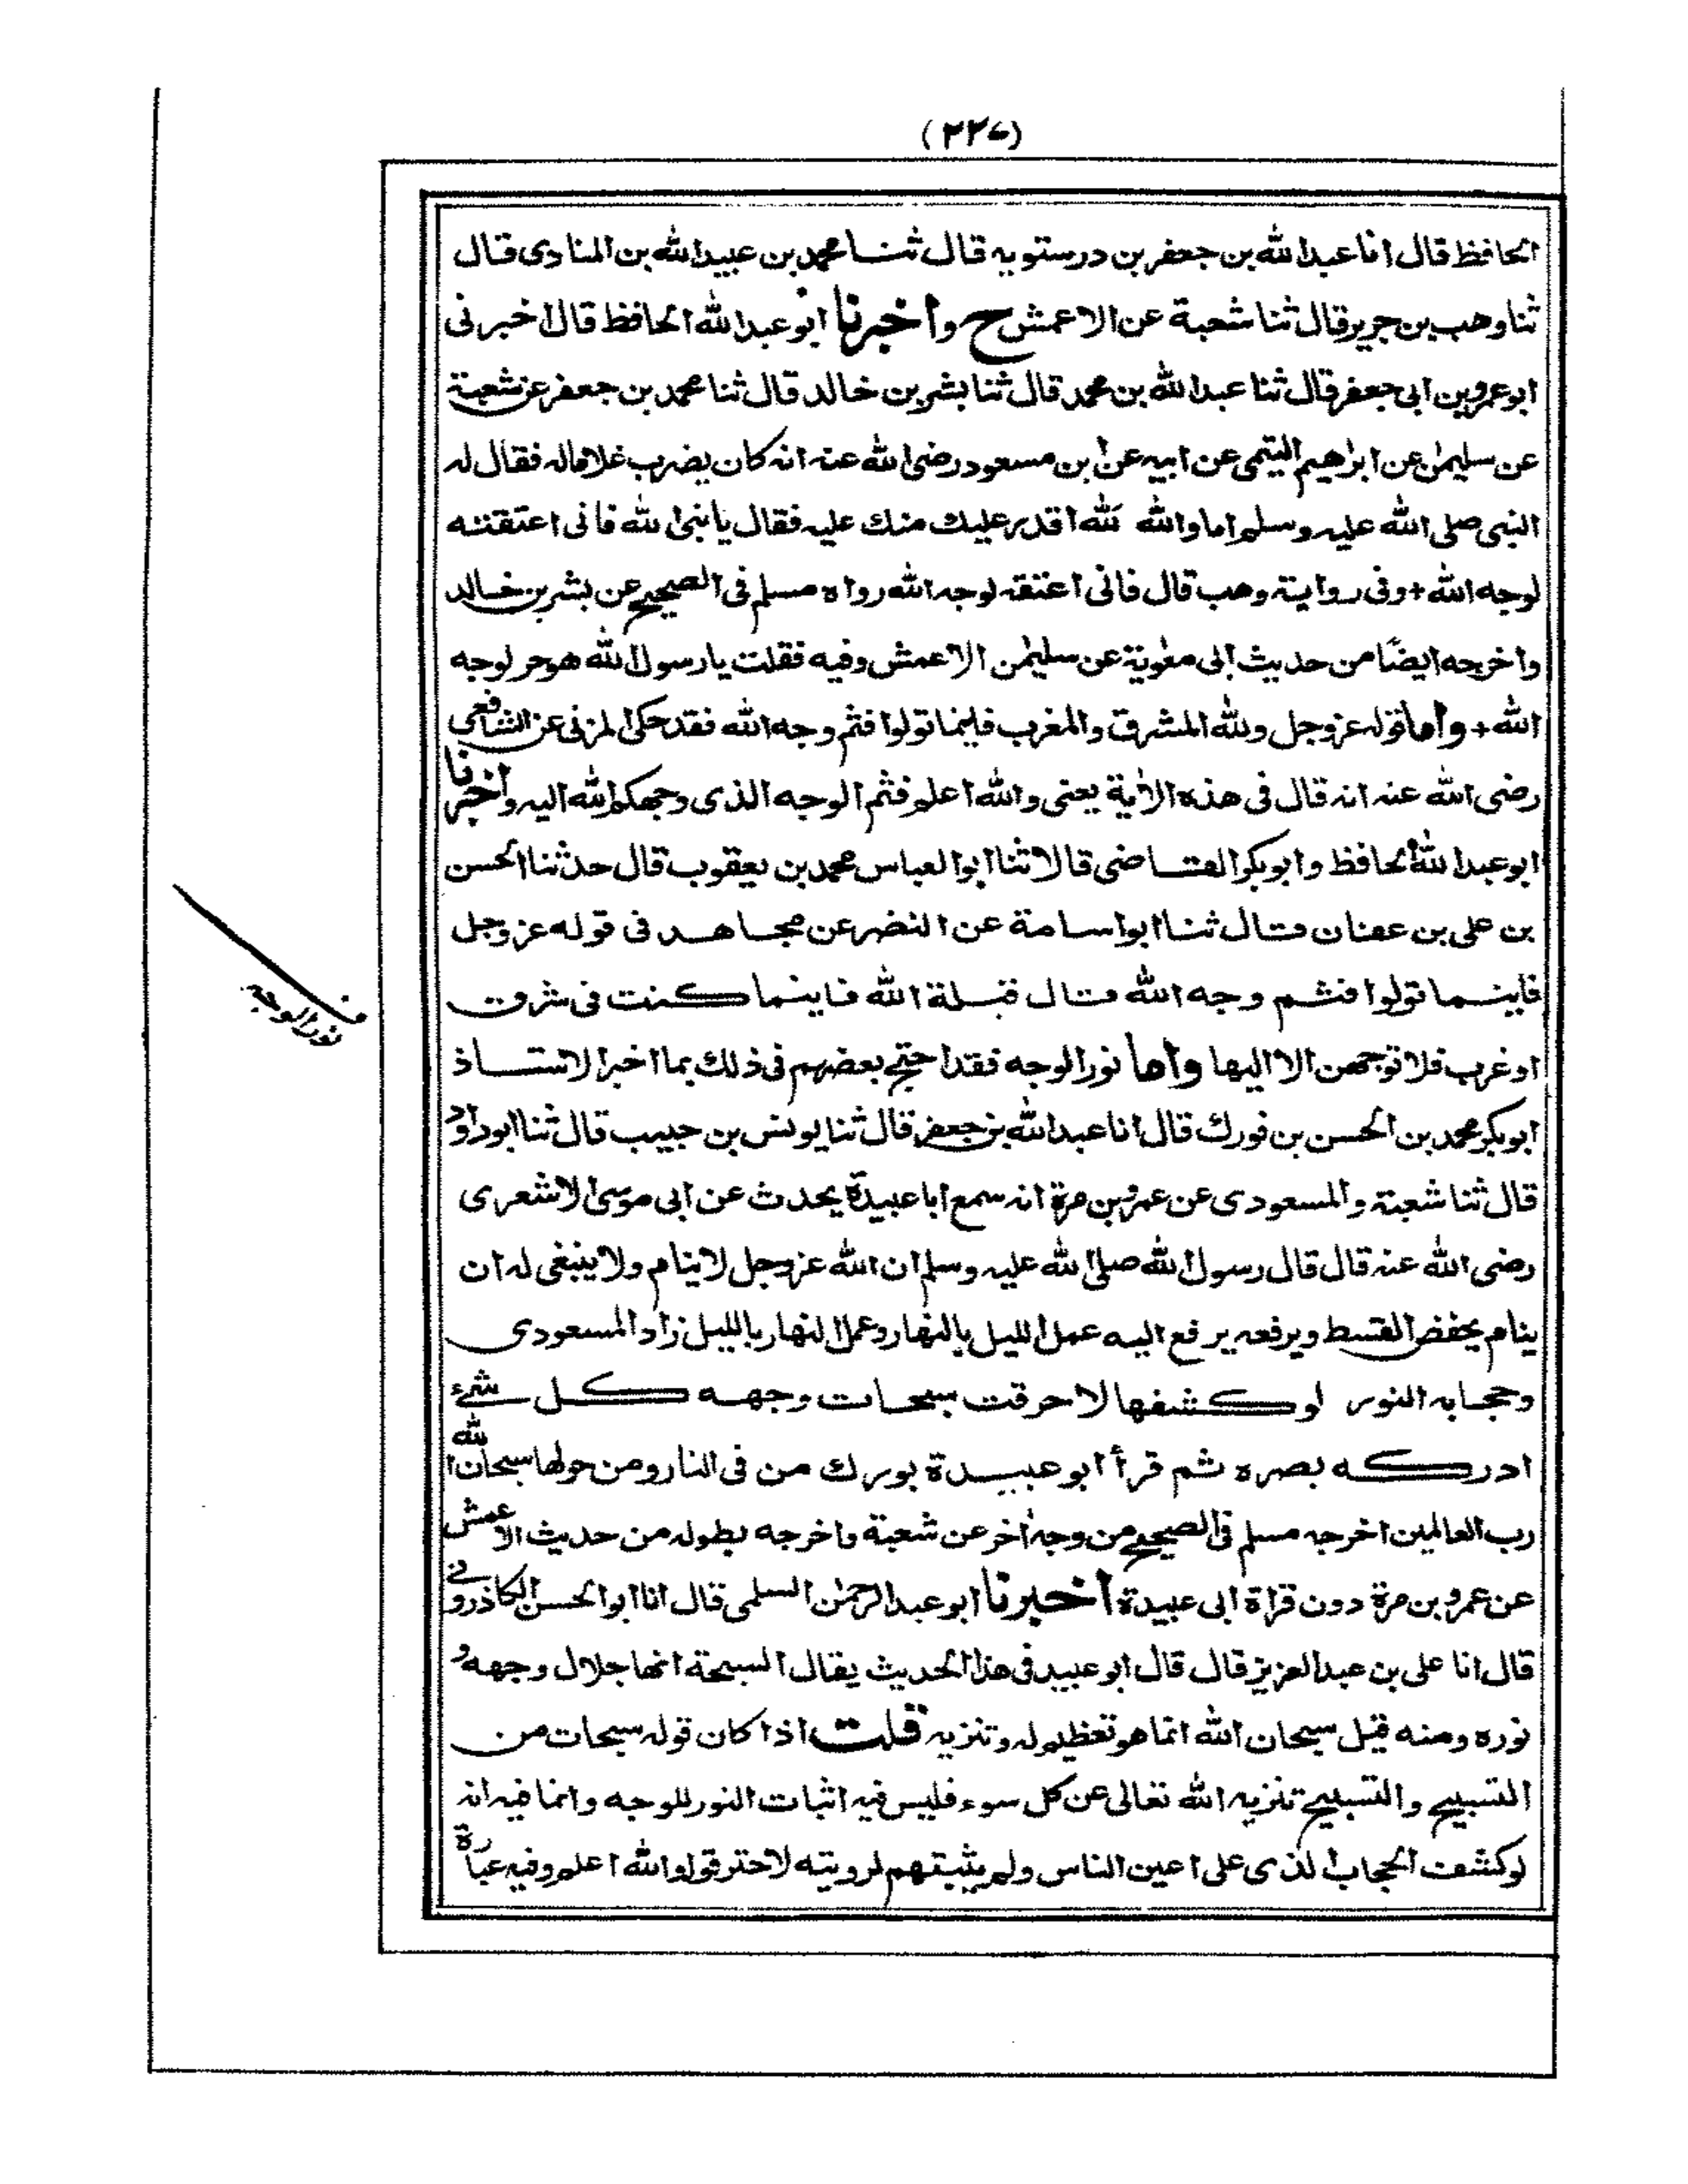 (٢٢٧)
الحافظ قال انا عبد الله بن جعفر بن درستويه قال ثنا محمد بن عبيد الله بن المنادى قال
ثنا وهب بن جرير قال ثنا شعبة عن الاعمش ح واخبرنا ابو عبد الله الحافظ قال اخبرنى
ابو عمرو بن ابى جعفر قال ثنا عبد الله بن محمد قال ثنا بشر بن خالد قال ثنا محمد بن جعفر عن شعبة
عن سليمٰن عن ابراهيم التيمى عن ابيه عن ابن مسعود رضى الله عنه انه كان يضرب غلاماله فقال له
النبى صلى الله عليه وسلم اما والله لله اقدر عليك منك عليه فقال يا نبى الله فانى اعتقته
لوجه الله + وفى رواية وهب قال فانى اعتقه لوجه الله رواه مسلم فى الصحيح عن بشر بن خالد
واخرجه ايضًا من حديث ابى معٰوية عن سليمٰن الاعمش وفيه فقلت يا رسول الله هو حر لوجه
الله + واما قوله عز وجل ولله المشرق والمغرب فاينما تولوا فثم وجه الله فقد حكى المزنى عن الشافعى
رضى الله عنه انه قال فى هذه الاٰية يعنى والله اعلم فثم الوجه الذى وجهكم الله اليه واخبرنا
ابو عبد الله الحافظ وابو بكر القاضى قالا ثنا ابو العباس محمد بن يعقوب قال حدثنا الحسن
بن على بن عفان قال ثنا ابو اسامة عن النضر عن مجاهد فى قوله عز وجل
فاينما تولوا فثم وجه الله قال قبلة الله فاينما كنت فى شرق
او غرب فلا توجهن الا اليها واما نور الوجه فقد احتج بعضهم فى ذلك بما اخبر الاستاذ
ابو بكر محمد بن الحسن بن فورك قال انا عبد الله بن جعفر قال ثنا يونس بن حبيب قال ثنا ابو داود
قال ثنا شعبة والمسعودى عن عمرو بن مرة انه سمع ابا عبيدة يحدث عن ابى موسى الاشعرى
رضى الله عنه قال قال رسول الله صلى الله عليه وسلم ان الله عز وجل لا ينام ولا ينبغى له ان
ينام يخفض القسط ويرفعه يرفع اليه عمل الليل بالنهار وعمل النهار بالليل زاد المسعودى
وحجابه النور لو كشفها لاحرقت سبحات وجهه كل شئ
ادركه بصره ثم قرأ ابو عبيدة بورك من فى النار ومن حولها سبحان الله
رب العالمين اخرجه مسلم فى الصحيح من وجه اٰخر عن شعبة واخرجه بطوله من حديث الاعمش
عن عمرو بن مرة دون قراة ابى عبيدة اخبرنا ابو عبد الرحمٰن السلمى قال انا ابو الحسن الكاذروني
قال انا على بن عبد العزيز قال قال ابو عبيد فى هذا الحديث يقال السبحة انها جلال وجهه و
نوره ومنه قيل سبحان الله انما هو تعظيم له وتنزيه قلت اذا كان قوله سبحات من
التسبيح والتسبيح تنزيه الله تعالى عن كل سوء فليس فيه اثبات النور للوجه وانما فيه انه
لو كشف الحجاب الذى على اعين الناس ولم يثبتهم لرويته لاحترقوا والله اعلم وفيه عبارة
ف نور الوجه